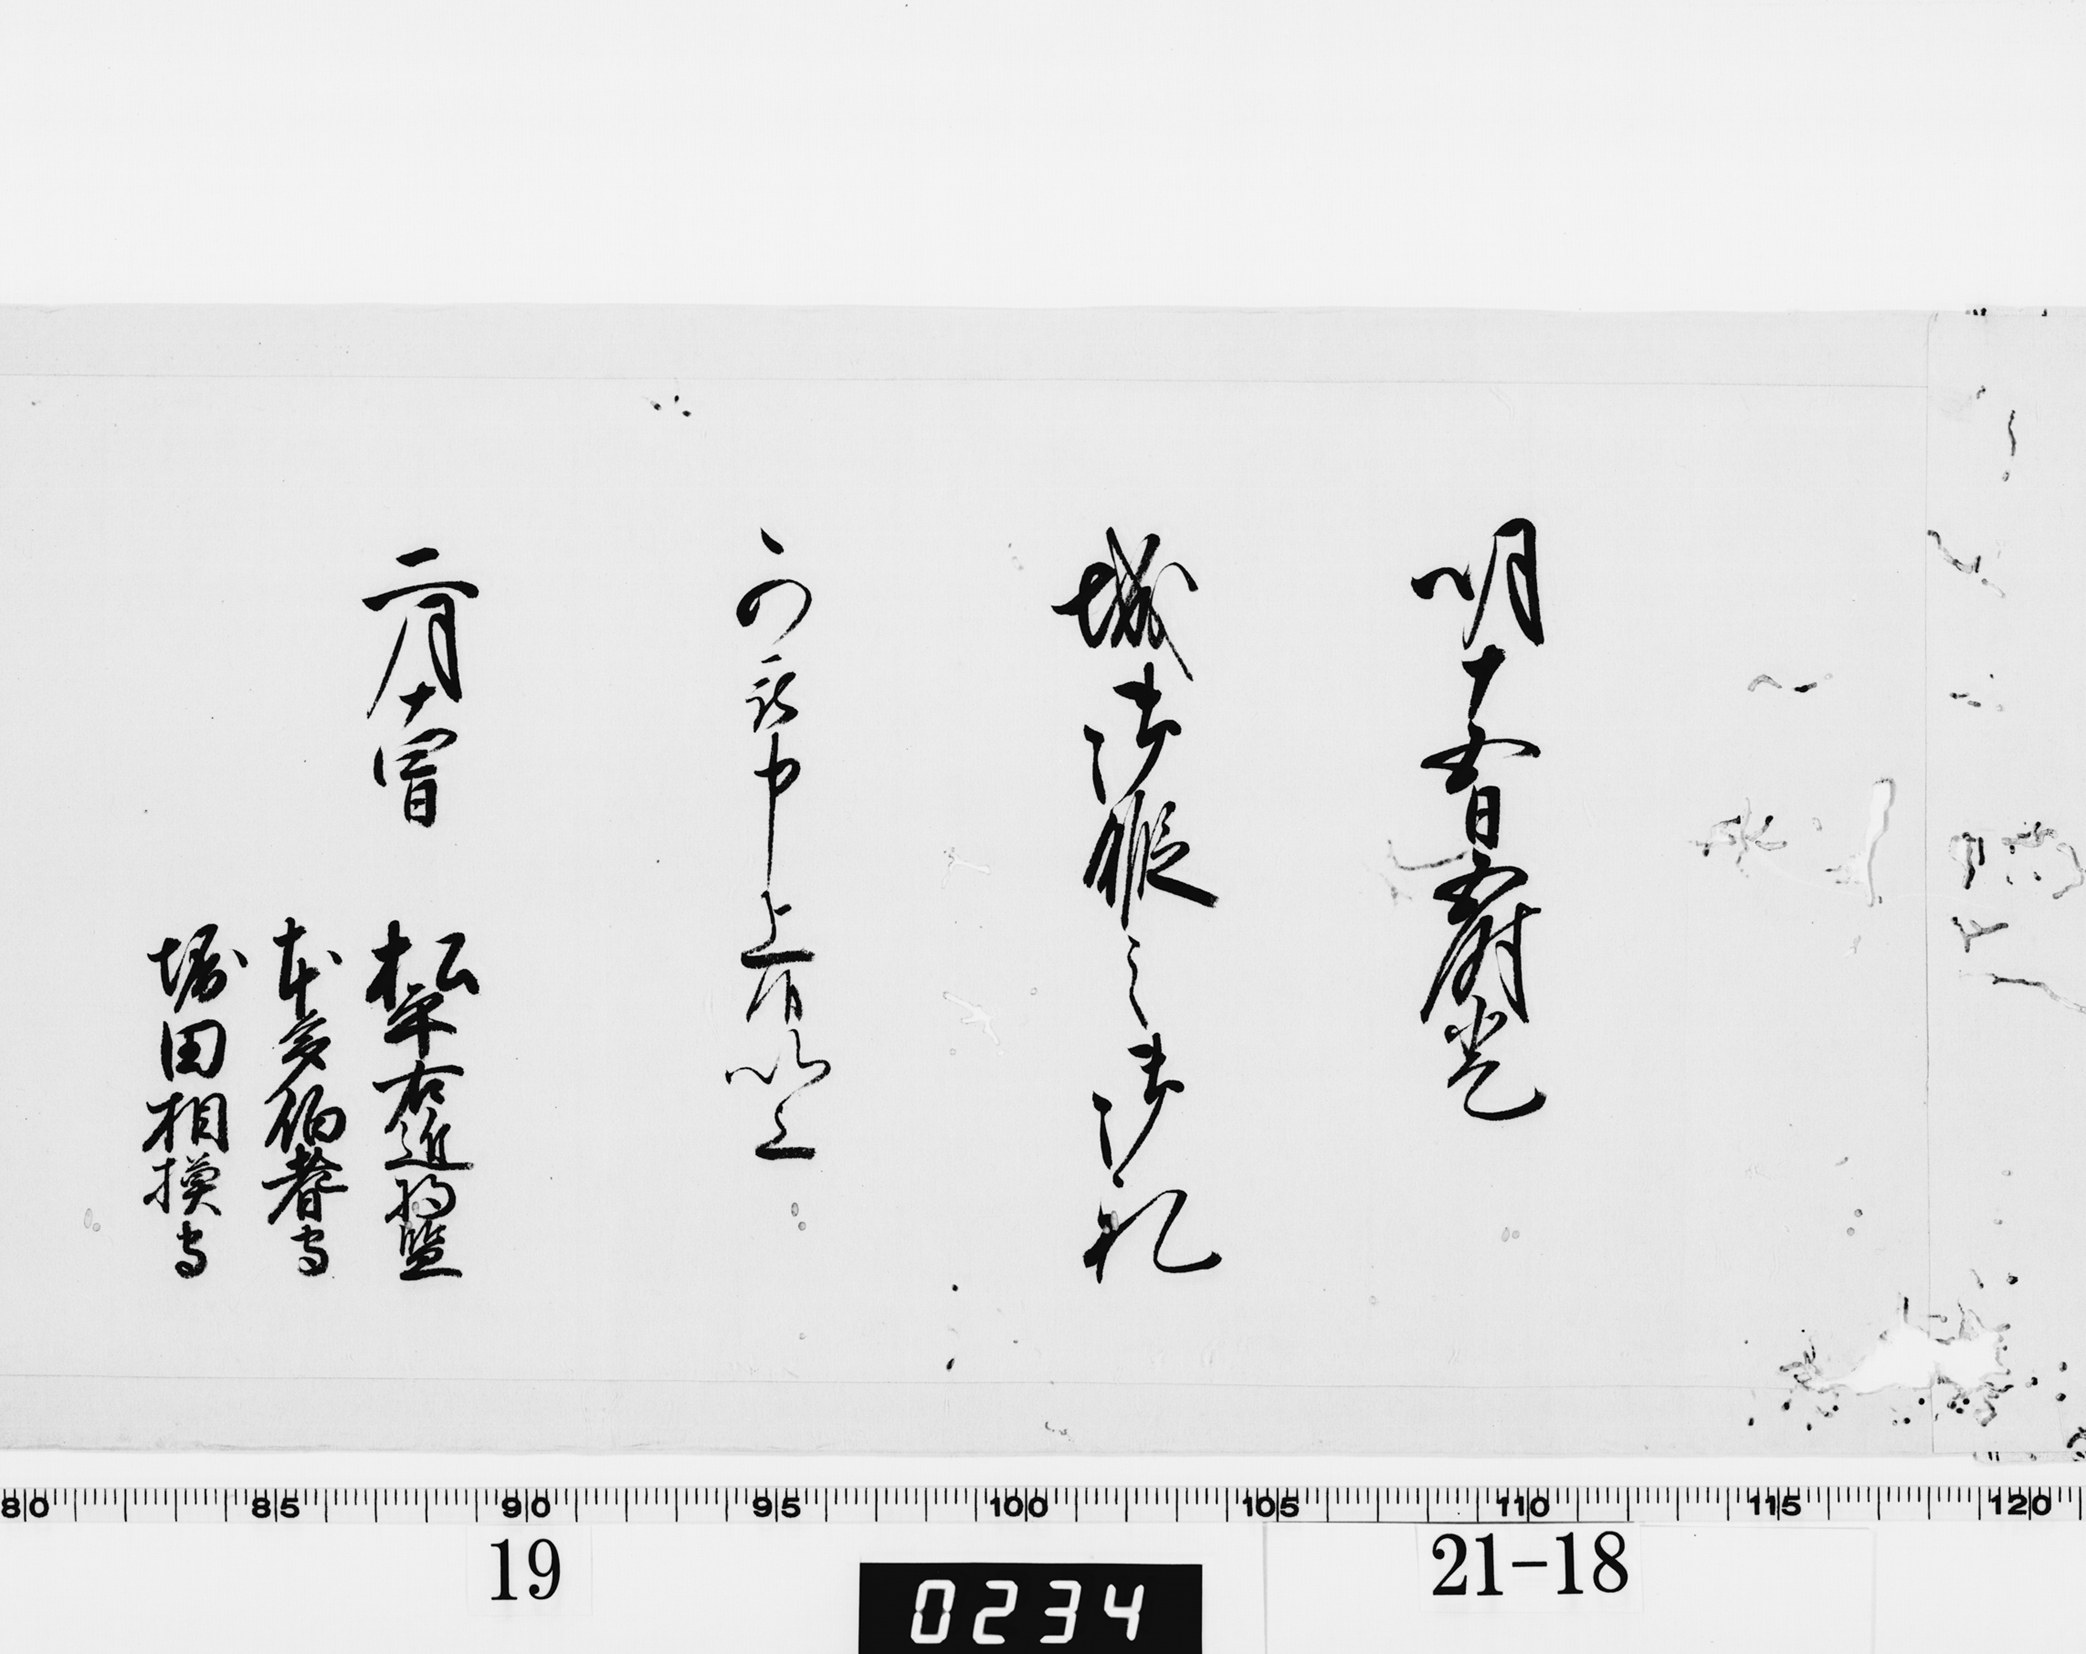 明十五日五時登
城御之御礼
可被申上候以上
二月十四日
松平右近将監
本多伯耆守
堀田相模守
80 85 90 95 100 105 110 115 120
19
0234
21-18